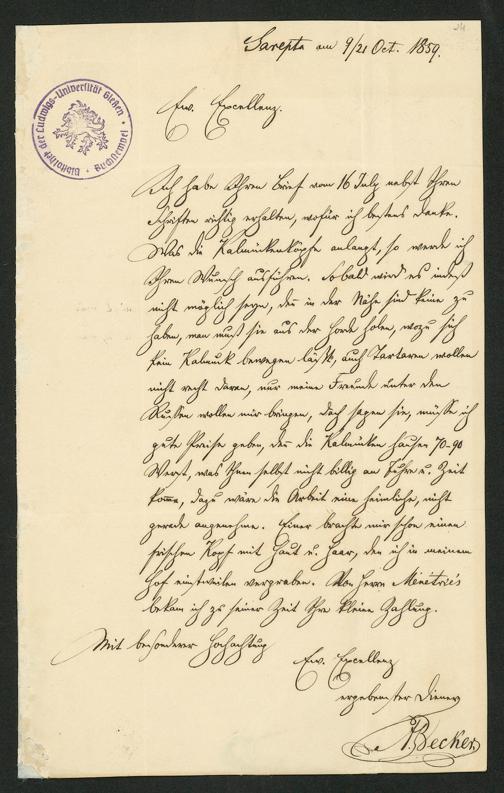 24
Sarepta am 9/21 Oct. 1859.
Bibliothek der Ludwigs-Universität Gießen • Buchstempel •
Ew. Excellenz.
Ich habe Ihren Brief vom 16 July nebst Ihren
Schriften richtig erhalten, wofür ich bestens danke.
Was die Kalmückenköpfe anlangt, so werde ich
Ihren Wunsch ausführen. Sobald wird es indeß
nicht möglich seyn, den in der Nähe sind keine zu
haben, man muß sie aus der Horde holen, wozu sich
kein Kalmuk bewegen läßt, auch Tartaren wollen
nicht recht daran, nur meine Freunde unter den
Russen wollen mir bringen, doch sagen sie, müsse ich
gute Preise geben, den die Kalmücken hausen 70-90
Werst, was Ihnen selbst nicht billig an Fuhre u. Zeit
komme, dazu wäre die Arbeit eine heimliche, nicht
gerade angenehme. Einer brachte mir schon einen
frischen Kopf mit Haut u. Haar, den ich in meinem
Hof einstweilen vergraben. Von Herrn Menetries
bekam ich zu seiner Zeit Ihre kleine Zahlung.
Mit besonderer Hochachtung
Ew. Excellenz
ergebenster Diener
A. Becker.